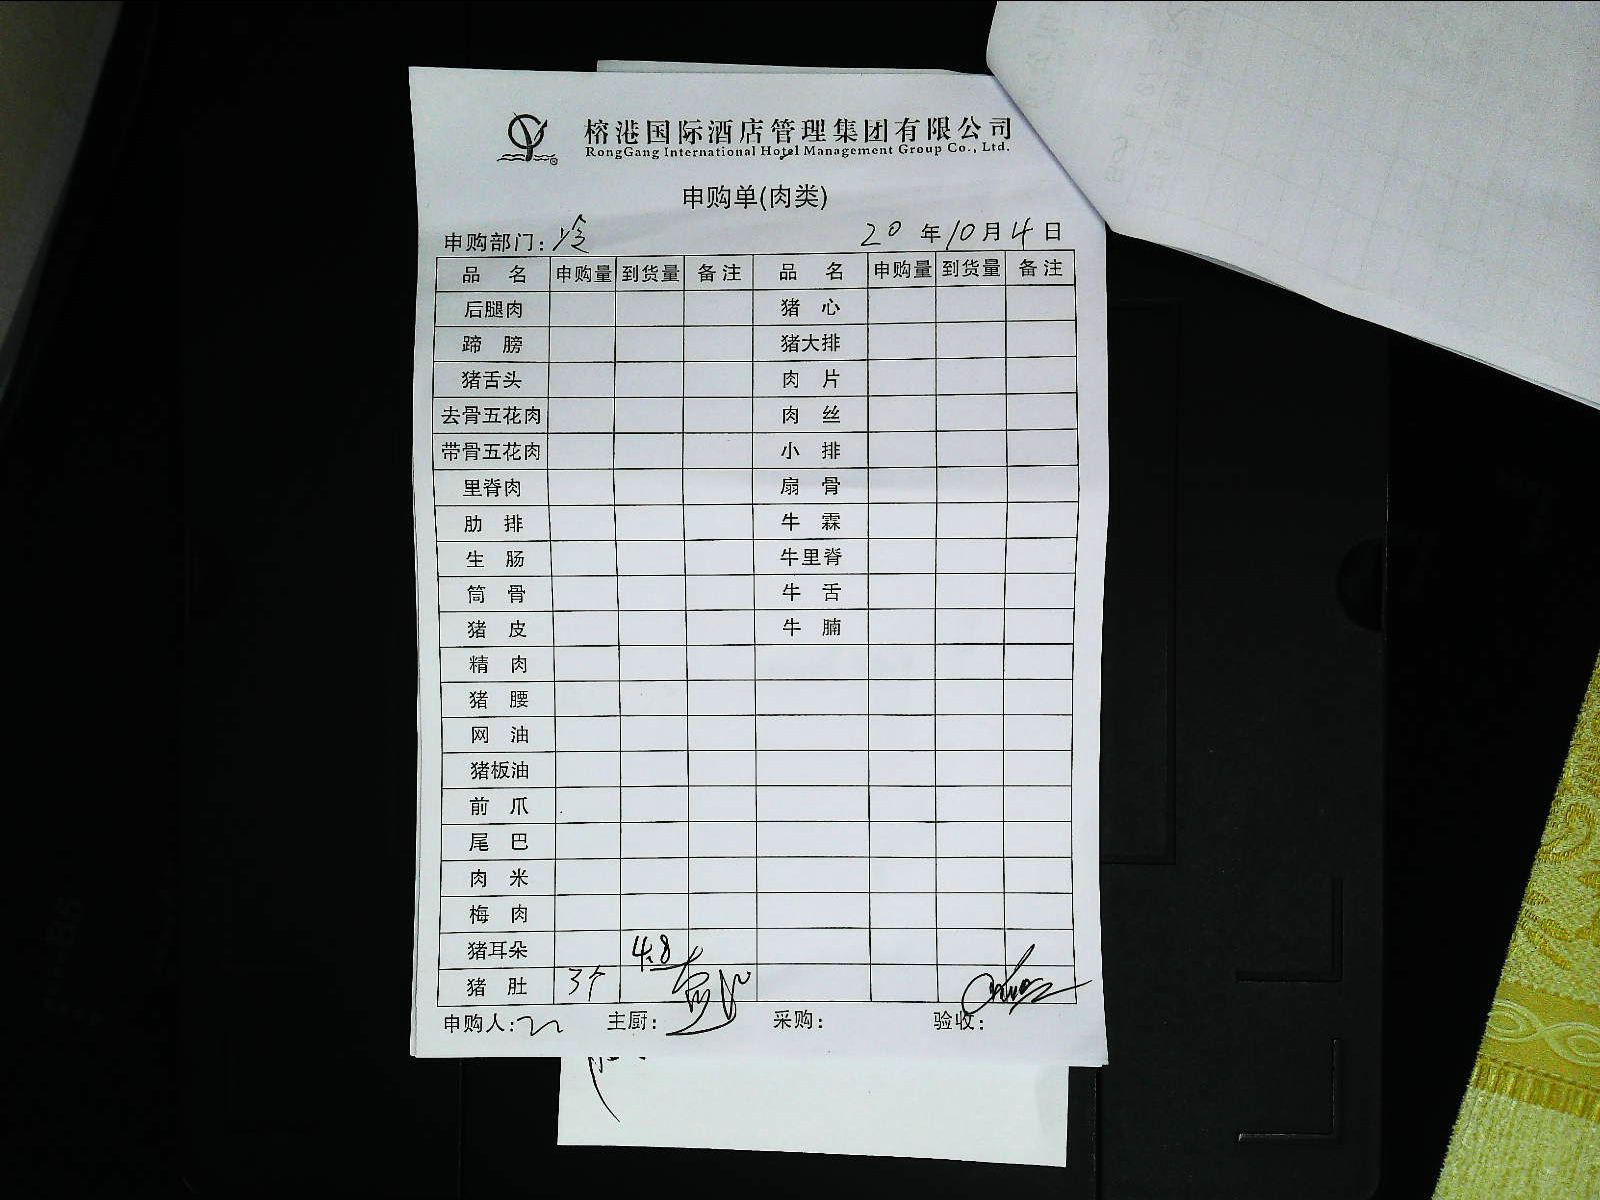 榕港国际酒店管理集团有限公司
RongGang International Hotel Management Group Co., Ltd.
申购单(肉类)
申购部门: 冷 20 年 10 月 4 日
品 名 申购量 到货量 备注 品 名 申购量 到货量 备注
后腿肉 猪 心
蹄 膀 猪大排
猪舌头 肉 片
去骨五花肉 肉 丝
带骨五花肉 小 排
里脊肉 扇 骨
肋 排 牛 霖
生 肠 牛里脊
筒 骨 牛 舌
猪 皮 牛 腩
精 肉
猪 腰
网 油
猪板油
前 爪
尾 巴
肉 米
梅 肉
猪耳朵 4.8
猪 肚 3个
申购人: 主厨: 采购: 验收: